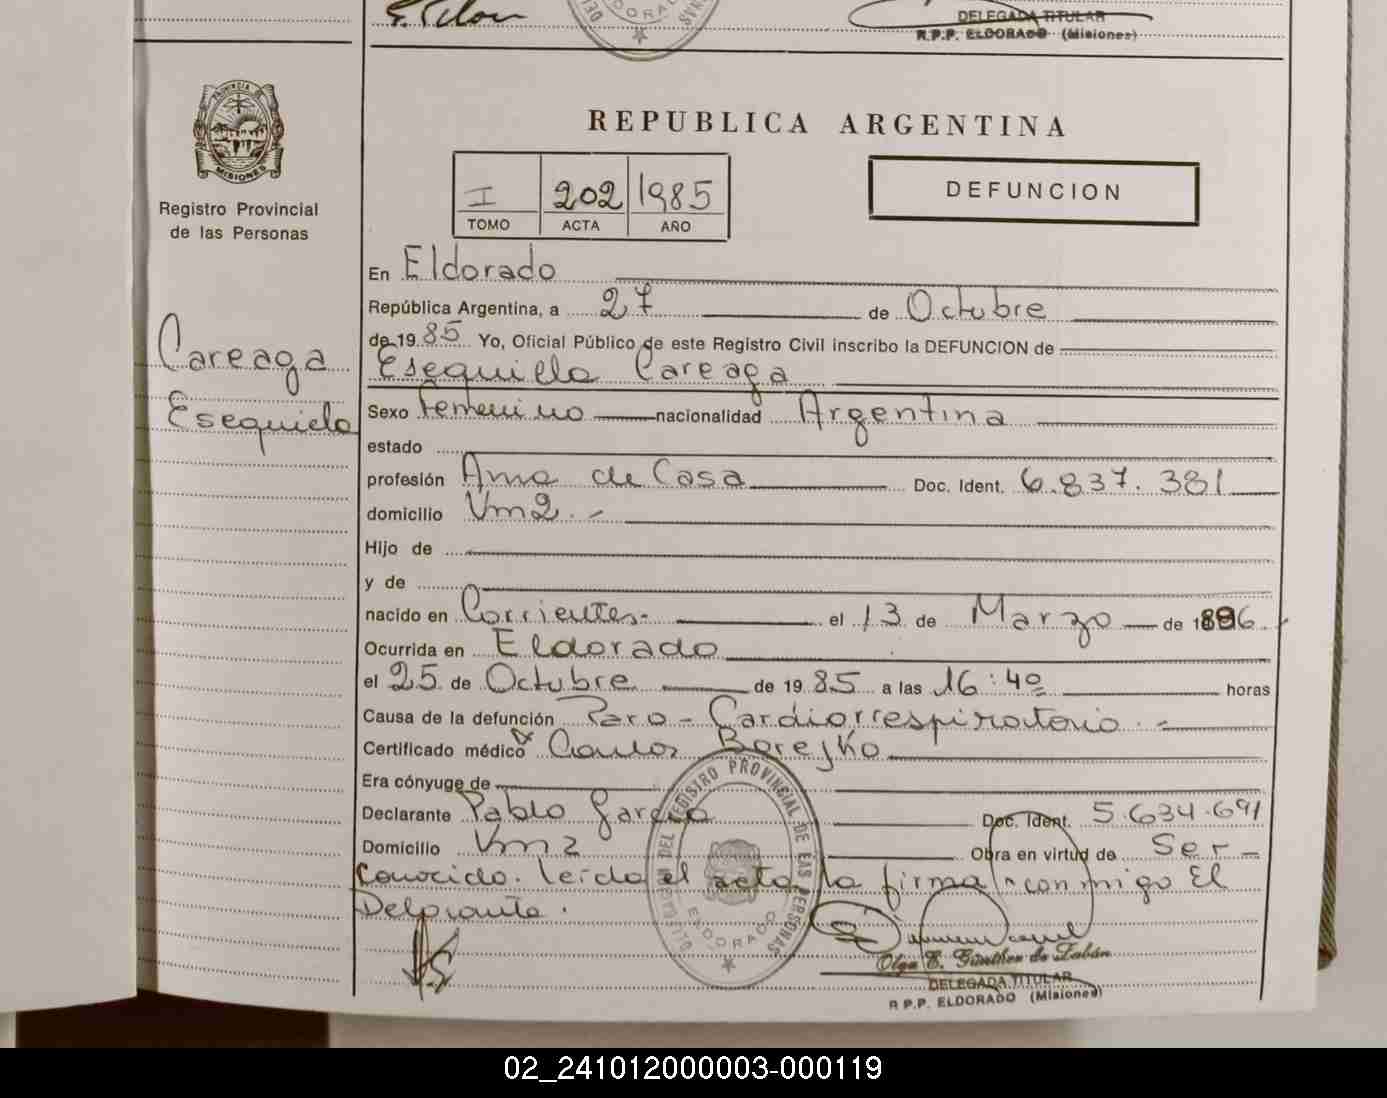 DELEGADA TITULAR
R.P.P. ELDORADO (Misiones)
PROVINCIA DE
MISIONES
Registro Provincial
de las Personas
Careaga
Esequiela
REPUBLICA ARGENTINA
I 202 1985
TOMO ACTA AÑO
DEFUNCION
En Eldorado
República Argentina, a 27 de Octubre
de 1985 Yo, Oficial Público de este Registro Civil inscribo la DEFUNCION de
Esequiela Careaga
Sexo Femenino nacionalidad Argentina
estado
profesión Ama de Casa Doc. Ident. 6.837.381
domicilio Km2.-
Hijo de
y de
nacido en Corrientes.- el 13 de Marzo de 1896
Ocurrida en Eldorado
el 25 de Octubre de 1985 a las 16:40 horas
Causa de la defunción Paro - Cardiorrespiratorio.-
Certificado médico Carlos Borejko
Era cónyuge de
Declarante Pablo Garcia Doc. Ident. 5.634.691
Domicilio Km 2 Obra en virtud de Ser
Conocido. leida el acta, la firma conmigo El
Delcarante.
DELEGACION DEL REGISTRO PROVINCIAL DE LAS PERSONAS
ELDORADO
Olga E. Günther de Zabán
DELEGADA TITULAR
R.P.P. ELDORADO (Misiones)
02_241012000003-000119